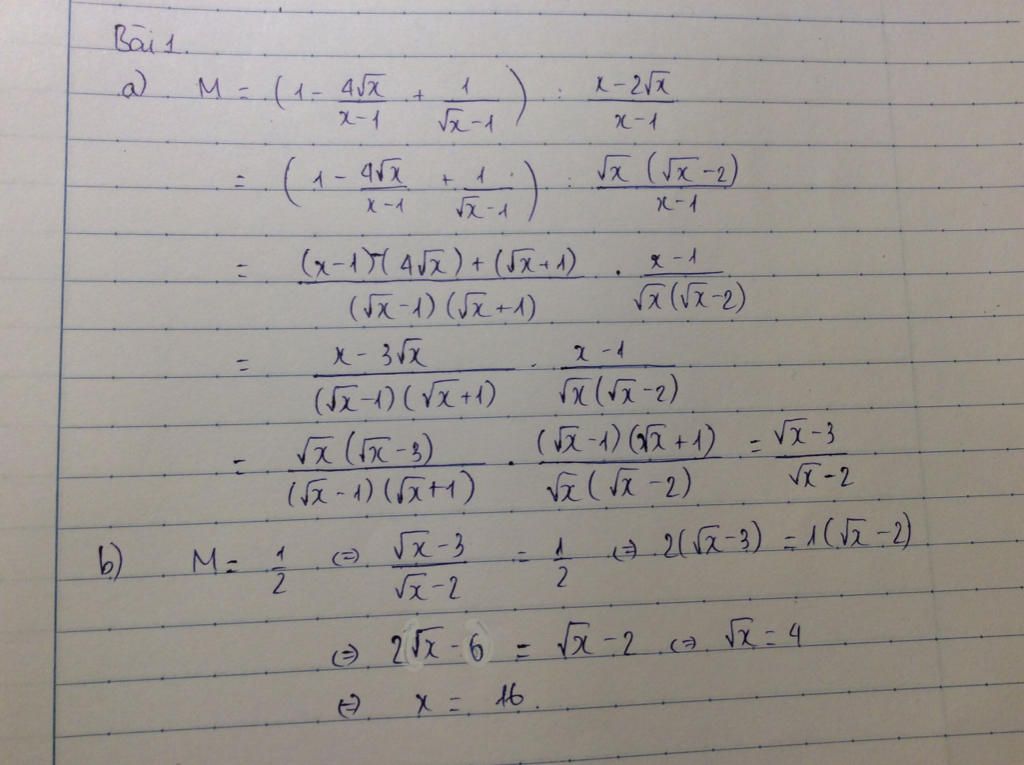 Bài 1.
a) M = (1 - 4√x/(x-1) + 1/(√x-1)) : (x-2√x)/(x-1)
= (1 - 4√x/(x-1) + 1/(√x-1)) : √x(√x-2)/(x-1)
= ((x-1)-(4√x)+(√x+1))/((√x-1)(√x+1)) . (x-1)/(√x(√x-2))
= (x-3√x)/((√x-1)(√x+1)) . (x-1)/(√x(√x-2))
= √x(√x-3)/((√x-1)(√x+1)) . (√x-1)(√x+1)/(√x(√x-2)) = (√x-3)/(√x-2)
b) M = 1/2 ⇔ (√x-3)/(√x-2) = 1/2 ⇔ 2(√x-3) = 1(√x-2)
⇔ 2√x-6 = √x-2 ⇔ √x = 4
⇔ x = 16.